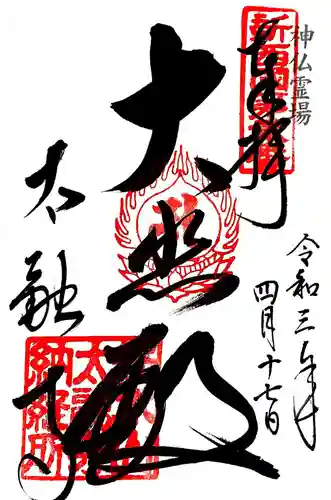 神仏霊場
奉拝
令和三年
四月十七日
大悲殿
太融寺
太融寺
納経所